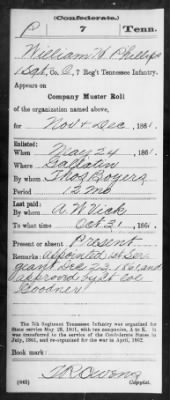 (Confederate.)
P 7 Tenn.
William H Phillips
1 Sgt, Co. C, 7 Reg't Tennessee Infantry.
Appears on
Company Muster Roll
of the organization named above,
for Nov & Dec, 1861.
Enlisted:
When May 24, 1861.
Where Gallatin
By whom Thos Boyers
Period 12 Mo
Last paid:
By whom A. W. Vick
To what time Oct 31, 1861.
Present or absent Present
Remarks: Appointed 1st Ser
geant Dec 23 1861 and
approved by Lt Col
Goodner
The 7th Regiment Tennessee Infantry was organized for
State service May 26, 1861, with ten companies, A to K. It
was transferred to the service of the Confederate States in
July, 1861, and re-organized for the war in April, 1862.
Book mark:
T R Owens
(642) Copyist.